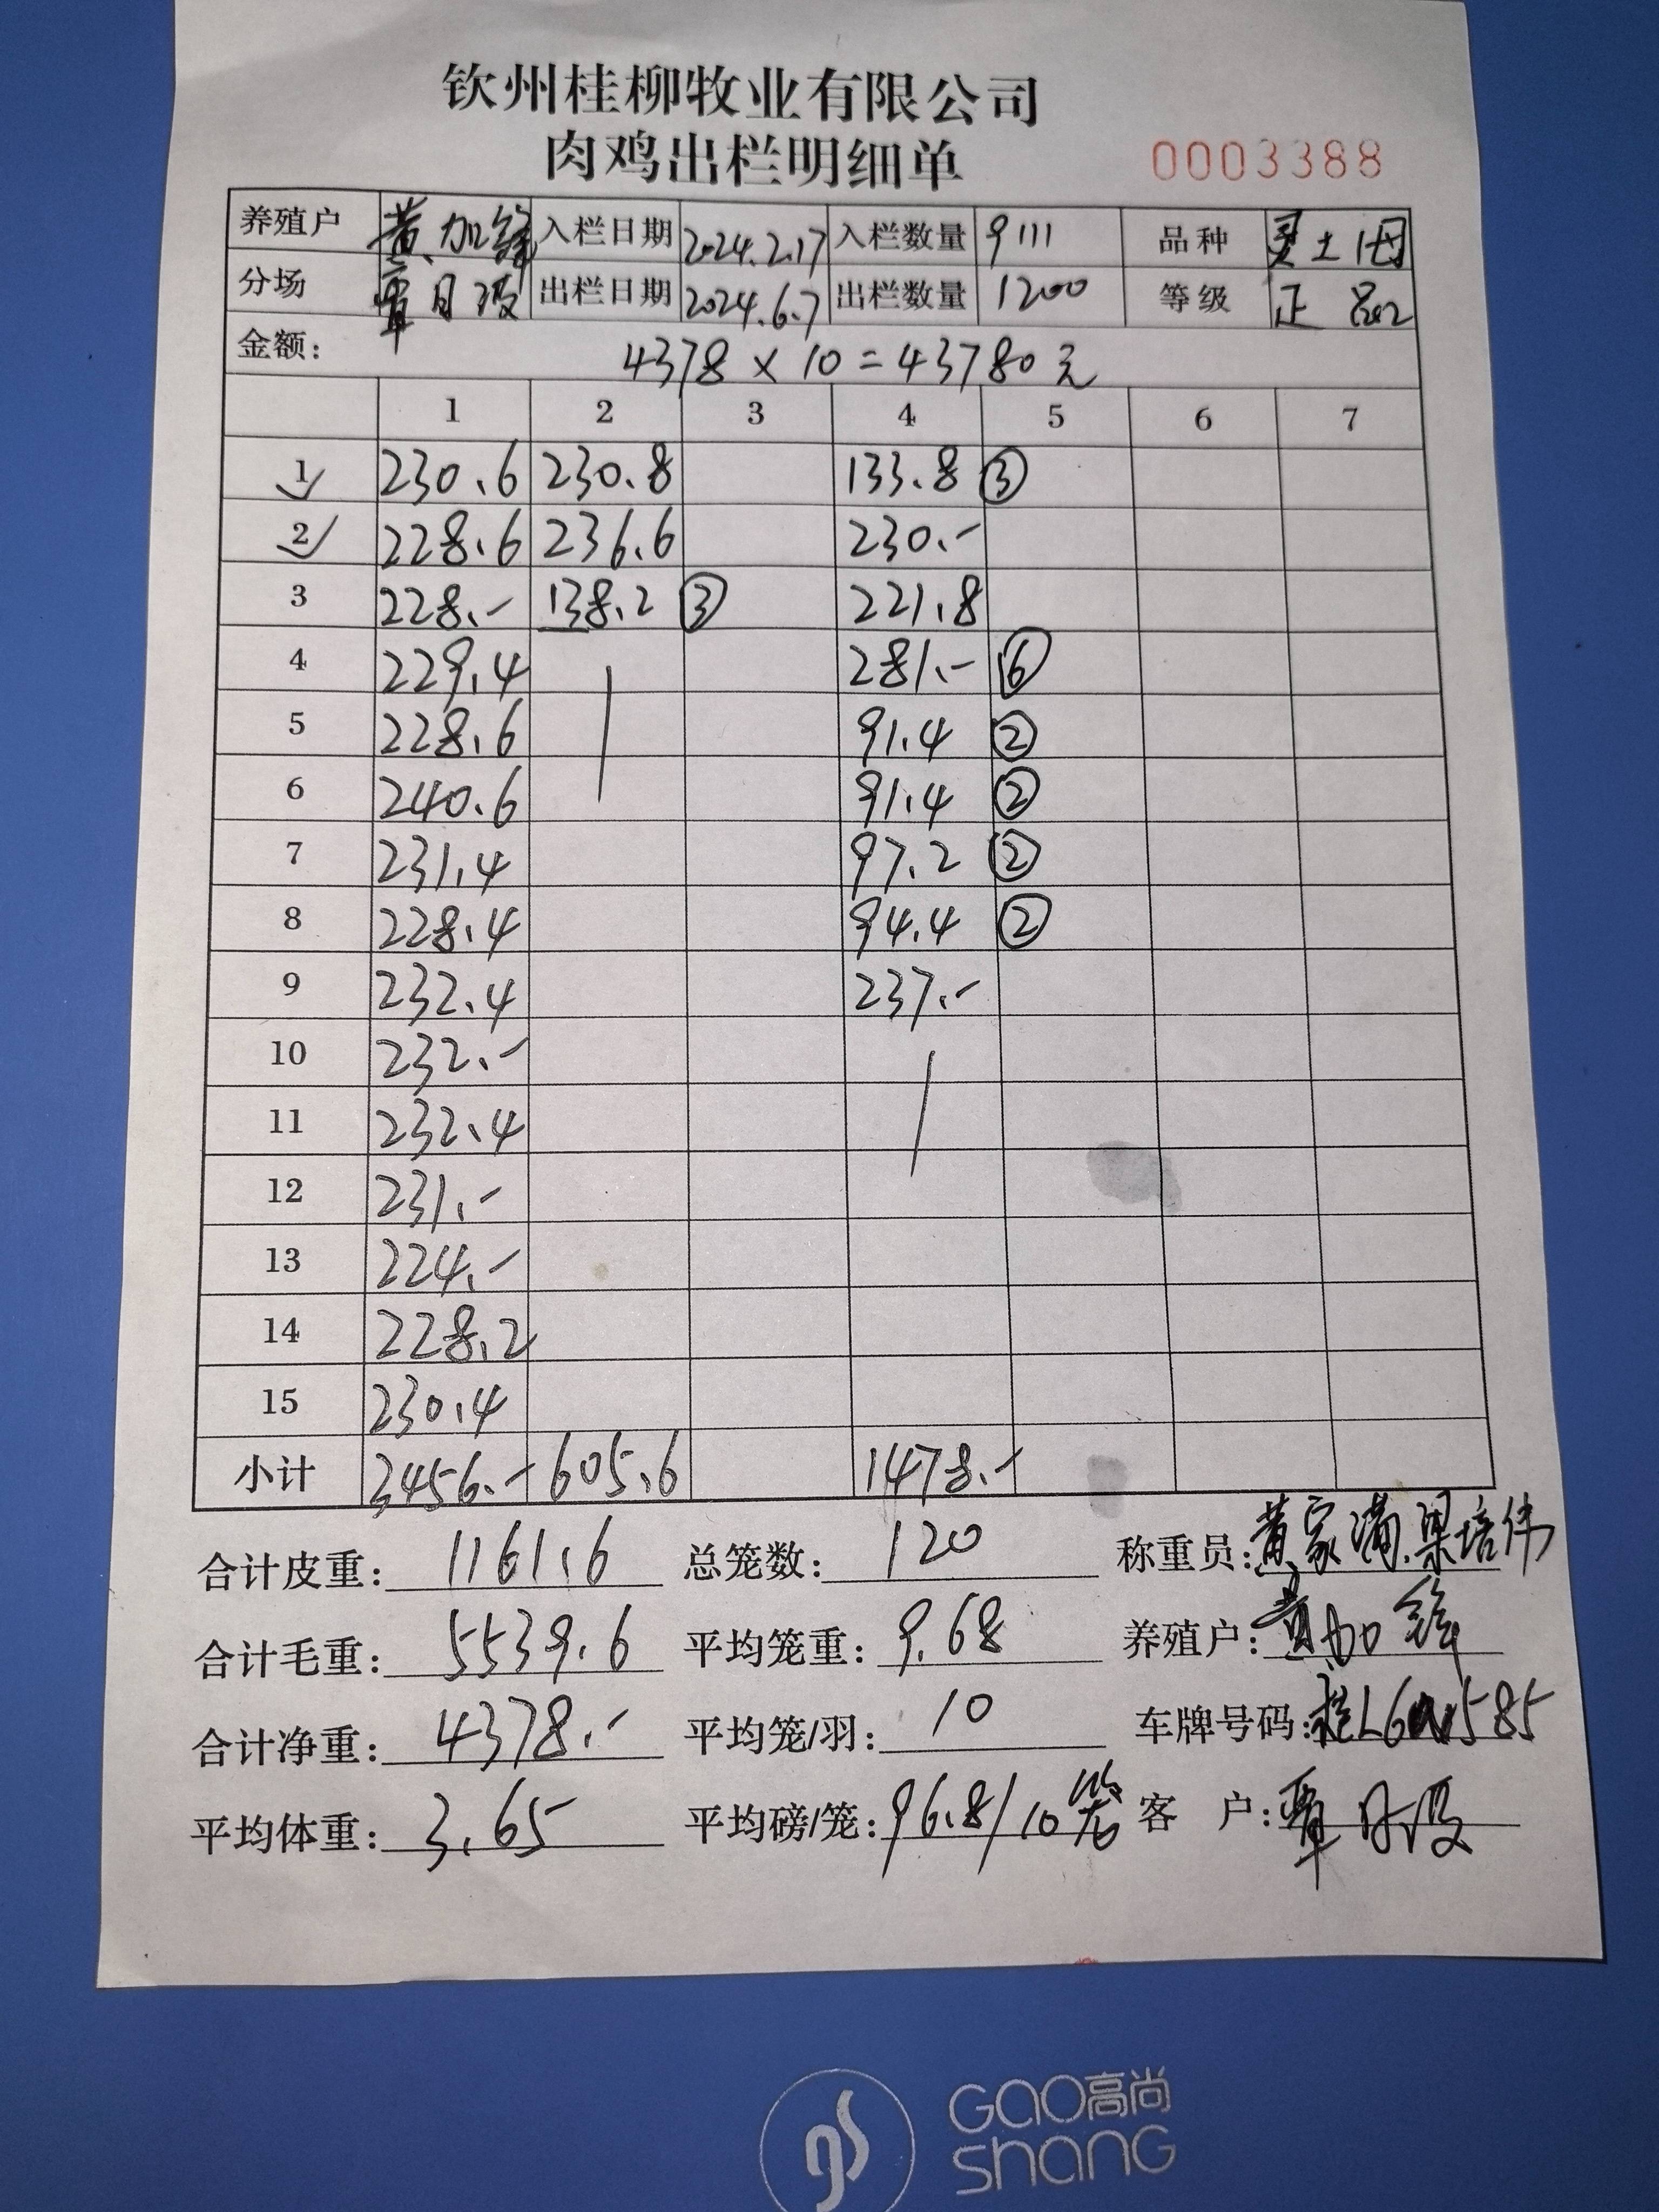 钦州桂柳牧业有限公司
肉鸡出栏明细单 0003388
养殖户 黄加锋 入栏日期 2024.2.17 入栏数量 9111 品种 灵土1母
分场 覃月 出栏日期 2024.6.7 出栏数量 1200 等级 正品
金额: 4378 × 10 = 43780元
1 2 3 4 5 6 7
1 230.6 230.8 133.8 ③
2 228.6 236.6 230.-
3 228.- 138.2 ③ 221.8
4 229.4 281.- ⑥
5 228.6 91.4 ②
6 240.6 91.4 ②
7 231.4 97.2 ②
8 228.4 94.4 ②
9 232.4 237.-
10 232.-
11 232.4
12 231.-
13 224.-
14 228.2
15 230.4
小计 3456.- 605.6 1478.-
合计皮重: 1161.6 总笼数: 120 称重员: 黄家满.梁培伟
合计毛重: 5539.6 平均笼重: 9.68 养殖户: 黄加锋
合计净重: 4378.- 平均笼/羽: 10 车牌号码: 桂L6 585
平均体重: 3.65 平均磅/笼: 96.8/10笼 客 户: 覃月
GAO高尚
SHANG